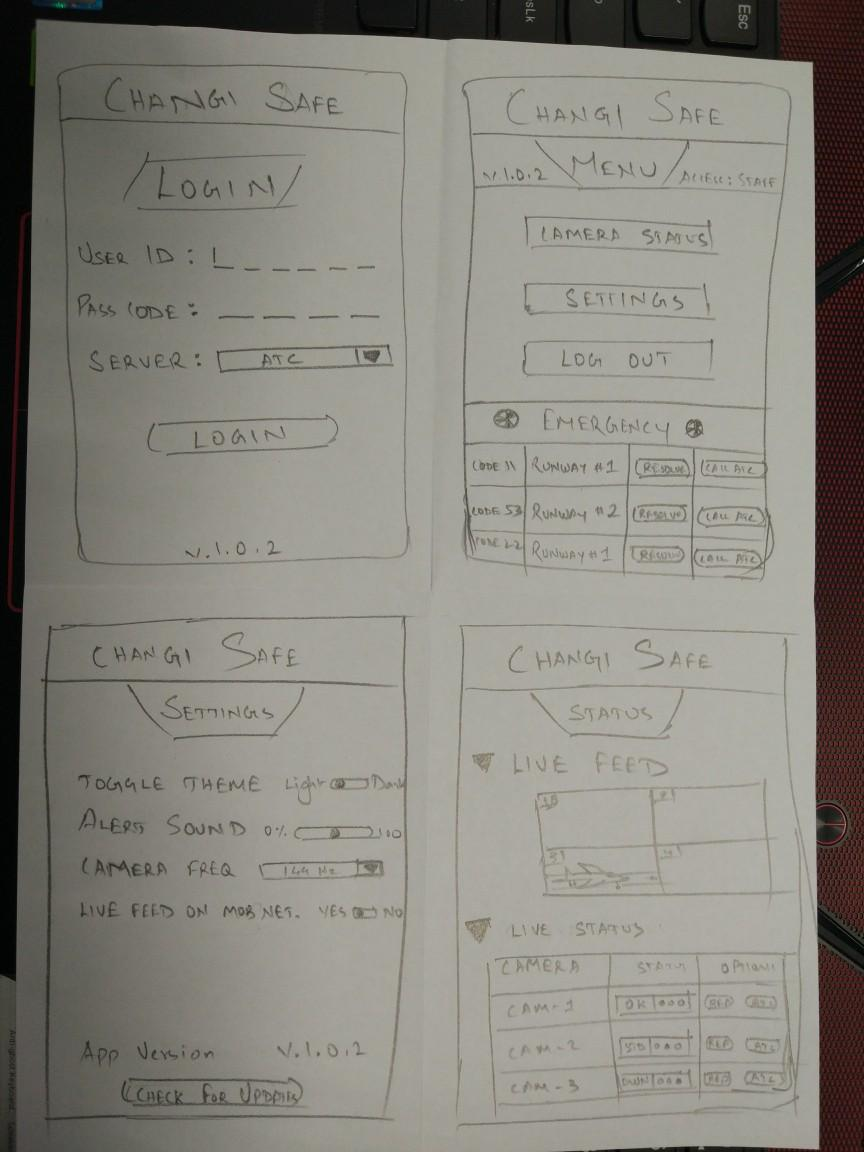 Esc
sLk
CHANGI SAFE
LOGIN
USER ID :
PASS CODE :
SERVER : ATC
LOGIN
v.1.0.2
CHANGI SAFE
v.1.0.2 MENU ACCESS : STAFF
CAMERA STATUS
SETTINGS
LOG OUT
EMERGENCY
CODE 11 RUNWAY #1 RESOLVE CALL ATC
CODE 53 RUNWAY #2 RESOLVE CALL ATC
CODE 22 RUNWAY #1 RESOLVE CALL ATC
CHANGI SAFE
SETTINGS
TOGGLE THEME Light Dark
ALERT SOUND 0% 100
CAMERA FREQ 144 Hz
LIVE FEED ON MOB NET. YES NO
App Version V.1.0.2
CHECK FOR UPDATES
CHANGI SAFE
STATUS
LIVE FEED
1 2
3 4
LIVE STATUS
CAMERA STATUS OPTIONS
CAM-1 OK 000 REP ATC
CAM-2 000 REP ATC
CAM-3 DWN 000 REP ATC